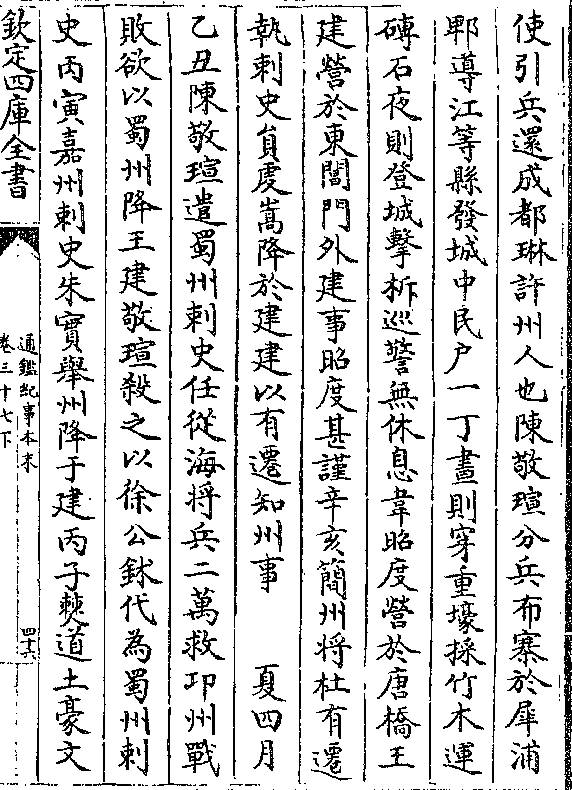 使引兵還成都琳許州人也陳敬瑄分兵布寨於犀浦
郫導江等縣發城中民户一丁晝則穿重壕採竹木運
磚石夜則登城擊柝巡警無休息韋昭度營於唐橋王
建營於東閶門外建事昭度甚謹辛亥簡州将杜有遷
執刺史員虔嵩降於建建以有遷知州事　　夏四月
乙丑陳敬瑄遣蜀州刺史任從海将兵二萬救邛州戰
敗欲以蜀州降王建敬瑄殺之以徐公鉥代為蜀州刺
史丙寅嘉州刺史朱實舉州降于建丙子僰道土豪文
欽定四庫全書
通鑑紀事本末
卷三十七下
四十六